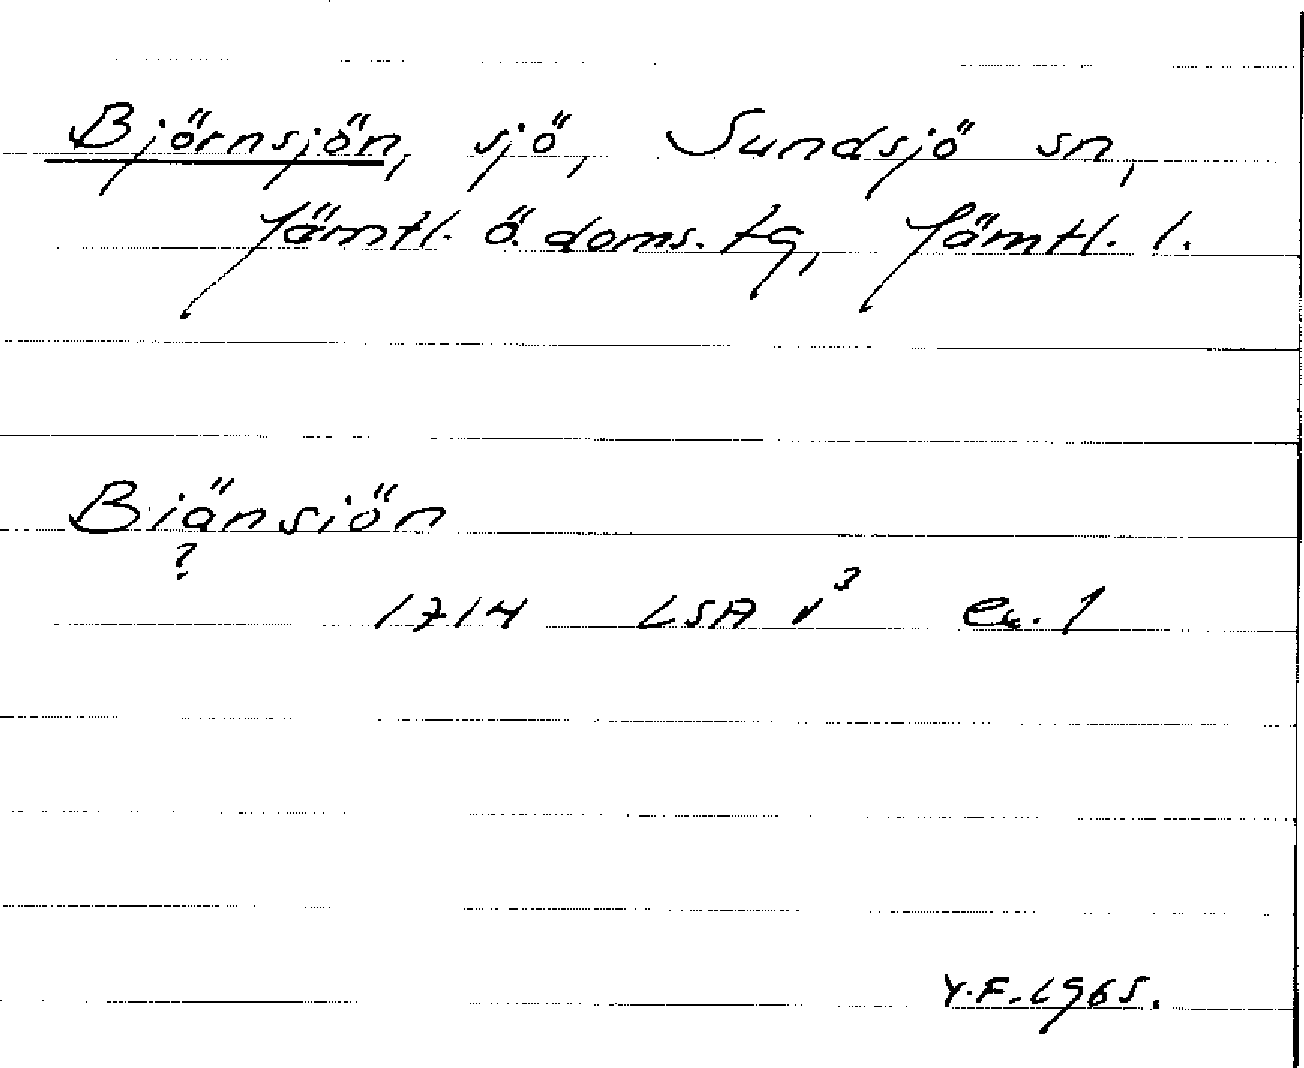 Björnsjön, sjö, Sundsjö sn,
Jämtl. ö. doms. tg, Jämtl. l.
Biänsiön
?
1714 LSA v³ ex. 1
Y.F. 1965.